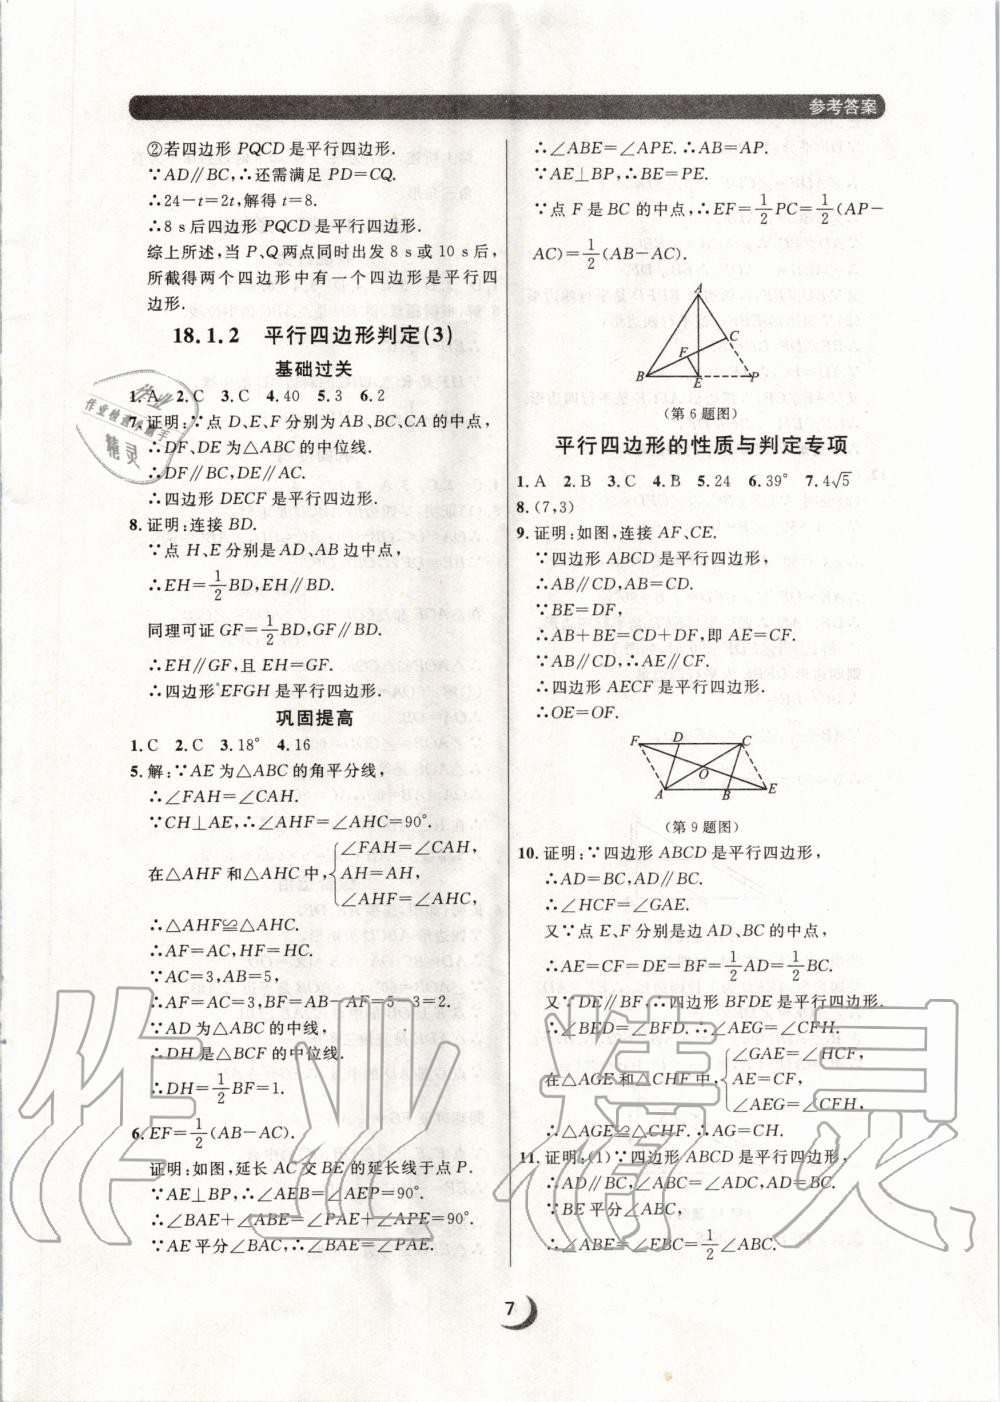 参考答案
②若四边形 PQCD 是平行四边形.
∵AD∥BC,∴还需满足 PD=CQ.
∴24-t=2t,解得 t=8.
∴8 s后四边形 PQCD 是平行四边形.
综上所述,当 P、Q 两点同时出发 8 s或 10 s后,
所截得两个四边形中有一个四边形是平行四
边形.
18.1.2 平行四边形判定(3)
基础过关
1.A 2.C 3.C 4.40 5.3 6.2
7.证明:∵点 D、E、F 分别为 AB、BC、CA 的中点,
∴DF、DE 为△ABC 的中位线.
∴DF∥BC,DE∥AC.
∴四边形 DECF 是平行四边形.
8.证明:连接 BD.
∵点 H、E 分别是 AD、AB 边中点,
∴EH=1/2BD,EH∥BD.
同理可证 GF=1/2BD,GF∥BD.
∴EH∥GF,且 EH=GF.
∴四边形 EFGH 是平行四边形.
巩固提高
1.C 2.C 3.18° 4.16
5.解:∵AE 为△ABC 的角平分线,
∴∠FAH=∠CAH.
∵CH⊥AE,∴∠AHF=∠AHC=90°.
在△AHF 和△AHC 中,{∠FAH=∠CAH,
AH=AH,
∠AHF=∠AHC,
∴△AHF≌△AHC.
∴AF=AC,HF=HC.
∵AC=3,AB=5,
∴AF=AC=3,BF=AB-AF=5-3=2.
∵AD 为△ABC 的中线,
∴DH 是△BCF 的中位线.
∴DH=1/2BF=1.
6.EF=1/2(AB-AC).
证明:如图,延长 AC 交 BE 的延长线于点 P.
∵AE⊥BP,∴∠AEB=∠AEP=90°.
∴∠BAE+∠ABE=∠PAE+∠APE=90°.
∵AE 平分∠BAC,∴∠BAE=∠PAE.
∴∠ABE=∠APE.∴AB=AP.
∵AE⊥BP,∴BE=PE.
∵点 F 是 BC 的中点,∴EF=1/2PC=1/2(AP-
AC)=1/2(AB-AC).
A
C
F
B E P
(第 6 题图)
平行四边形的性质与判定专项
1.A 2.B 3.C 4.B 5.24 6.39° 7.4√5
8.(7,3)
9.证明:如图,连接 AF、CE.
∵四边形 ABCD 是平行四边形,
∴AB∥CD,AB=CD.
∵BE=DF,
∴AB+BE=CD+DF,即 AE=CF.
∵AB∥CD,∴AE∥CF.
∴四边形 AECF 是平行四边形.
∴OE=OF.
F D C
O
A B E
(第 9 题图)
10.证明:∵四边形 ABCD 是平行四边形,
∴AD=BC,AD∥BC.
∴∠HCF=∠GAE.
又∵点 E、F 分别是边 AD、BC 的中点,
∴AE=CF=DE=BF=1/2AD=1/2BC.
又∵DE∥BF,∴四边形 BFDE 是平行四边形.
∴∠BED=∠BFD.∴∠AEG=∠CFH.
在△AGE 和△CHF 中,{∠GAE=∠HCF,
AE=CF,
∠AEG=∠CFH,
∴△AGE≌△CHF.∴AG=CH.
11.证明:(1)∵四边形 ABCD 是平行四边形,
∴AD∥BC,∠ABC=∠ADC,AD=BC.
∵BE 平分∠ABC,
∴∠ABE=∠EBC=1/2∠ABC.
7
作业
作业检查小助手
精灵
作业精灵